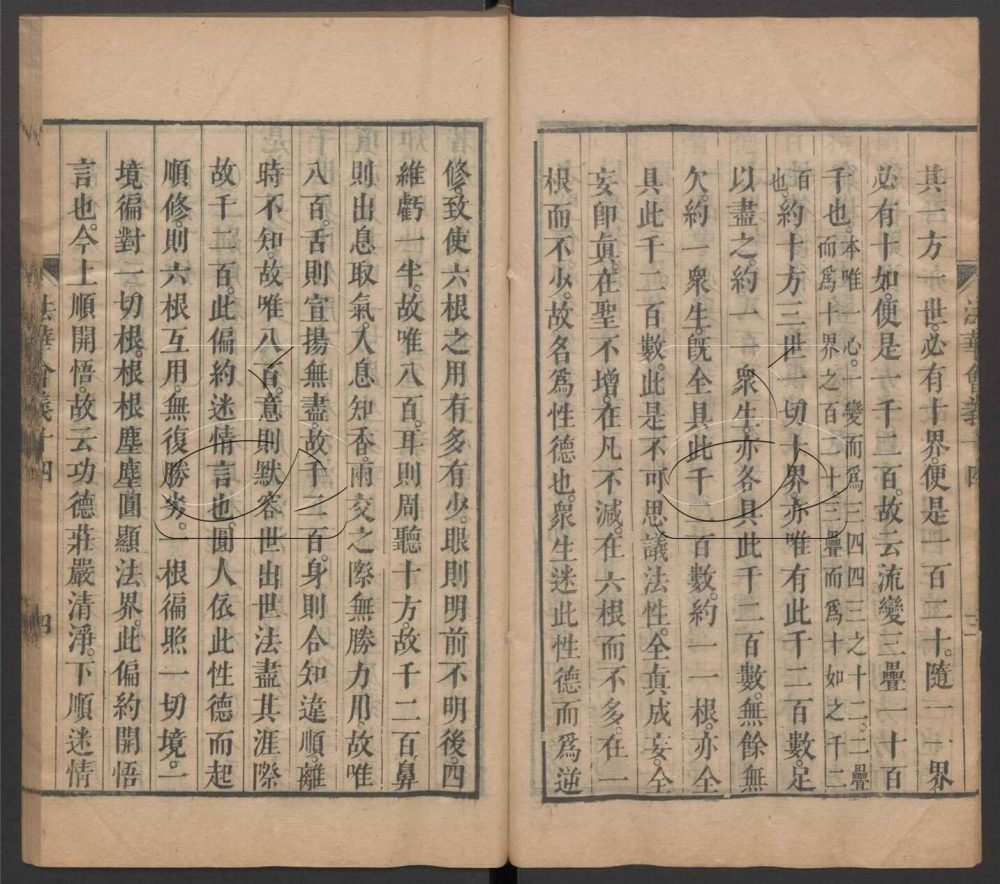 其一方一世。必有十界。便是一百二十。隨一一界
必有十如。便是一千二百。故云流變三疊一十百
千也。本唯一心。一變而爲三四四三之十二。二疊
而爲十界之百二十。三疊而爲十如之千二
百也。約十方三世一切十界。亦唯有此千二百數。足
以盡之。約一一衆生。亦各具此千二百數。無餘無
欠。約一衆生。旣全具此千二百數。約一一根。亦全
具此千二百數。此是不可思議法性。全眞成妄。全
妄卽眞。在聖不增。在凡不減。在六根而不多。在一
根而不少。故各爲性德也。衆生迷此性德而爲逆
法華會義十四
三
修。致使六根之用有多有少。眼則明前不明後。四
維虧一半。故唯八百。耳則周聽十方。故千二百。鼻
則出息取氣。入息知香。兩交之際無勝力用。故唯
八百。舌則宣揚無盡。故千二百。身則合知違順。離
時不知。故唯八百。意則默容世出世法盡其涯際
故千二百。此偏約迷情言也。圓人依此性德而起
順修。則六根互用。無復勝劣。一根徧照一切境。一
境徧對一切根。根根塵塵。圓顯法界。此偏約開悟
言也。今上順開悟。故云功德莊嚴清淨。下順迷情
法華會義十四
四